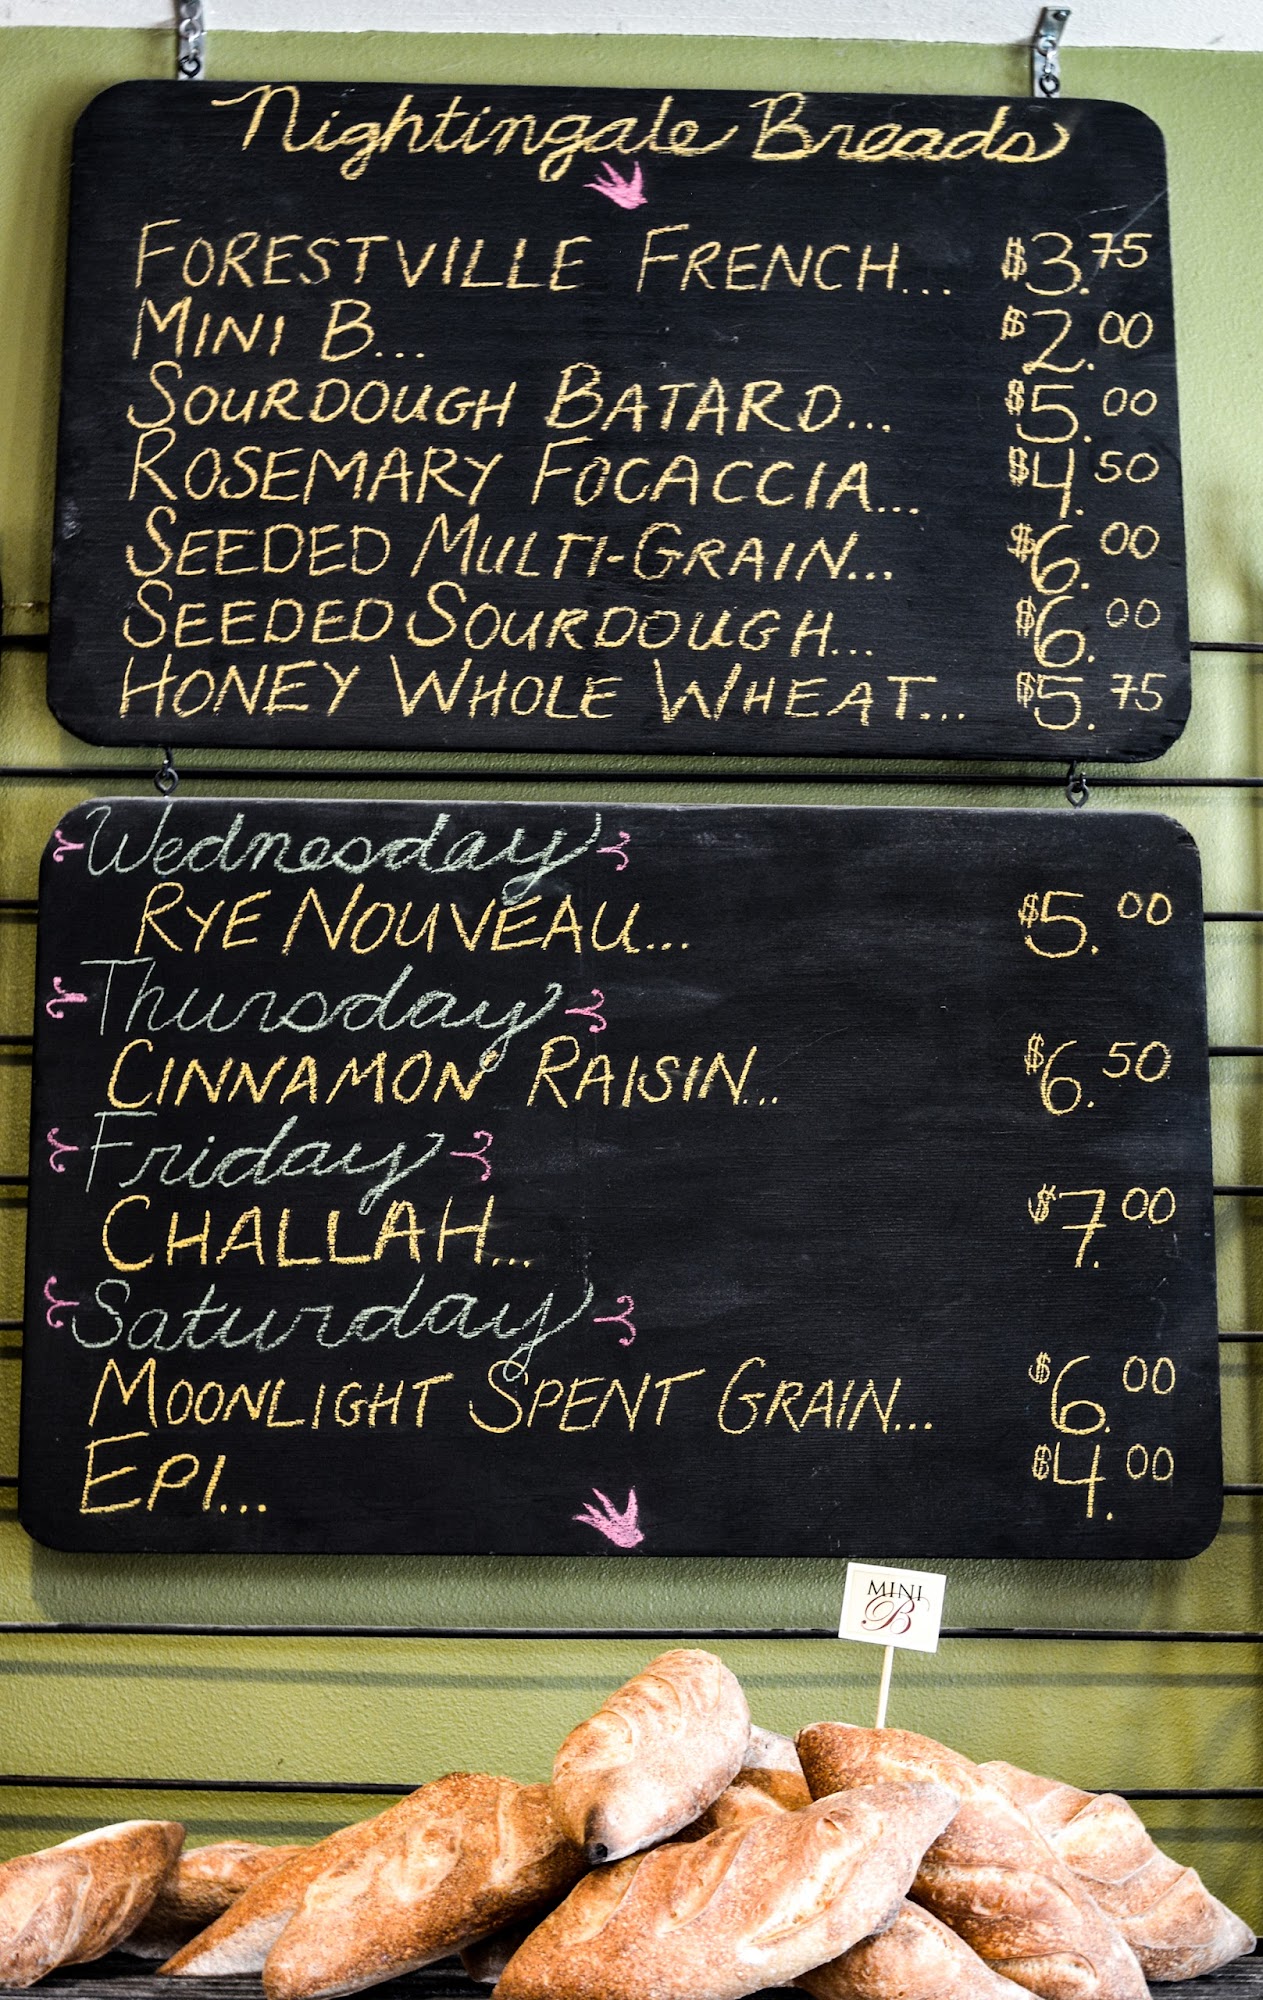 Nightingale Breads
FORESTVILLE FRENCH... $3.75
MINI B... $2.00
SOURDOUGH BATARD... $5.00
ROSEMARY FOCACCIA... $4.50
SEEDED MULTI-GRAIN... $6.00
SEEDED SOURDOUGH... $6.00
HONEY WHOLE WHEAT... $5.75
Wednesday
RYE NOUVEAU... $5.00
Thursday
CINNAMON RAISIN... $6.50
Friday
CHALLAH... $7.00
Saturday
MOONLIGHT SPENT GRAIN... $6.00
EPI... $4.00
MINI
B